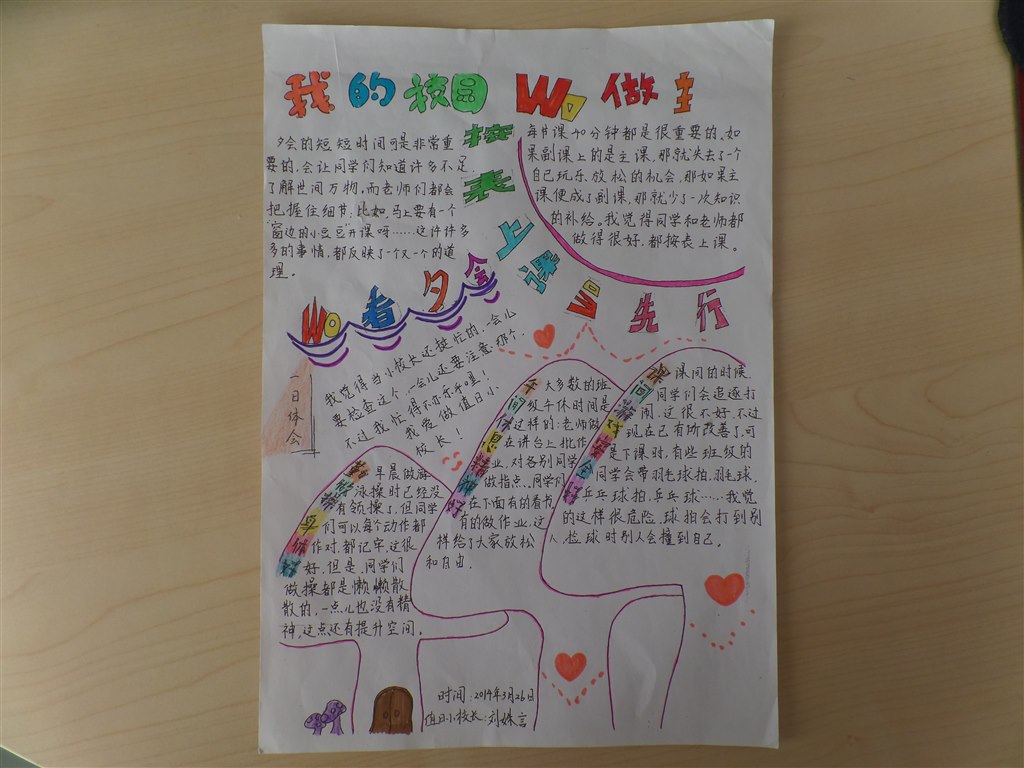 我的校园Wo做主
夕会的短短时间可是非常重
要的,会让同学们知道许多不足,
了解世间万物,而老师们都会
把握住细节,比如,马上要有一个
“窗边的小豆豆”开课呀……这许许多
多的事情,都反映了一个又一个的道
理。
Wo看夕会
按表上课Wo先行
每节课40分钟都是很重要的,如
果副课上的是主课,那就失去了一个
自己玩乐放松的机会,那如果主
课便成了副课,那就少了一次知识
的补给。我觉得同学和老师都
做得很好,都按表上课。
一日体会
我觉得当小校长还挺忙的,一会儿
要检查这个,一会儿还要注意那个,
不过我忙得不亦乐乎哩!
我爱做值日小
校长!
早晨做游
泳操时已经没
有领操了,但同学
们可以每个动作都
作对,都记牢,这很
好,但是,同学们
做操都是懒懒散
散的,一点儿也没有精
神,这点还有提升空间。
午间休息精神好
大多数的班
级午休时间是
这样的:老师做
在讲台上批作
业,对各别同学
做指点,同学们
在下面有的看书,
有的做作业,这
样给了大家放松
和自由。
课间游戏安全好
课间的时候
同学们会追逐打
闹,这很不好,不过
现在已有所改善了,可
是下课时,有些班级的
同学会带羽毛球拍、羽毛球、
乒乓球拍、乒乓球……我觉
的这样很危险,球拍会打到别
人,捡球时别人会撞到自己。
时间:2014年3月26日
值日小校长:刘姝言